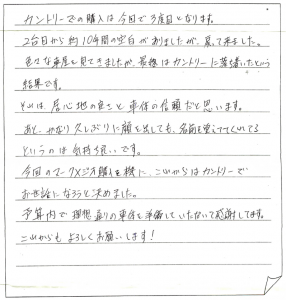 カントリーでの購入は今回で3度目となります。
2台目から約10年間の空白がありましたが、戻って来ました。
色々な車屋を見てきましたが、最後はカントリーに落着いたという
結果です。
それは、居心地の良さと車体の信頼だと思います。
あと、かなり久しぶりに顔を出しても、名前を覚えてくれてる
というのは気持ち良いです。
今回のマークXジオ購入を機に、これからはカントリーで
お世話になろうと決めました。
予算内で理想通りの車台を準備していただいて感謝してます。
これからもよろしくお願いします!